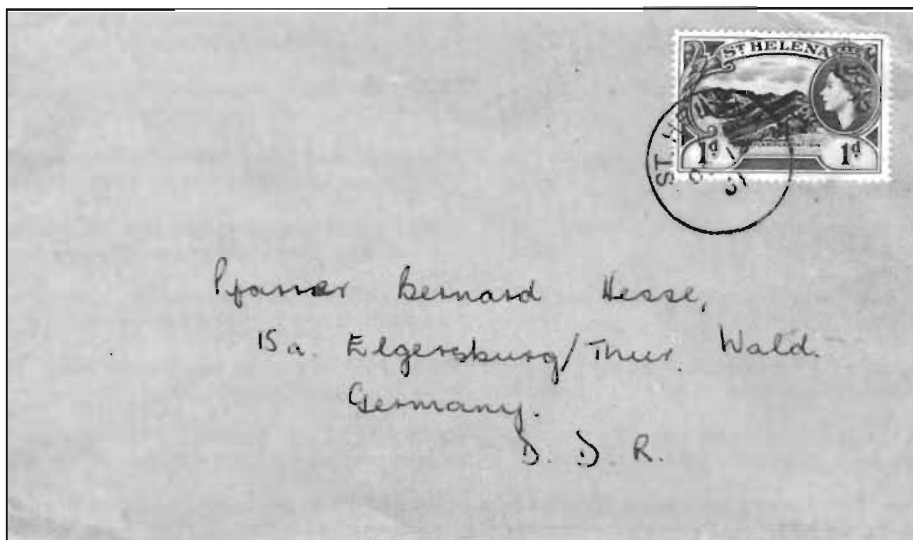 ST HELENA
1d 1d
ST. H
Pfarrer Bernard Hesse,
15a. Elgersburg/Thur. Wald.
Germany.
D. D. R.